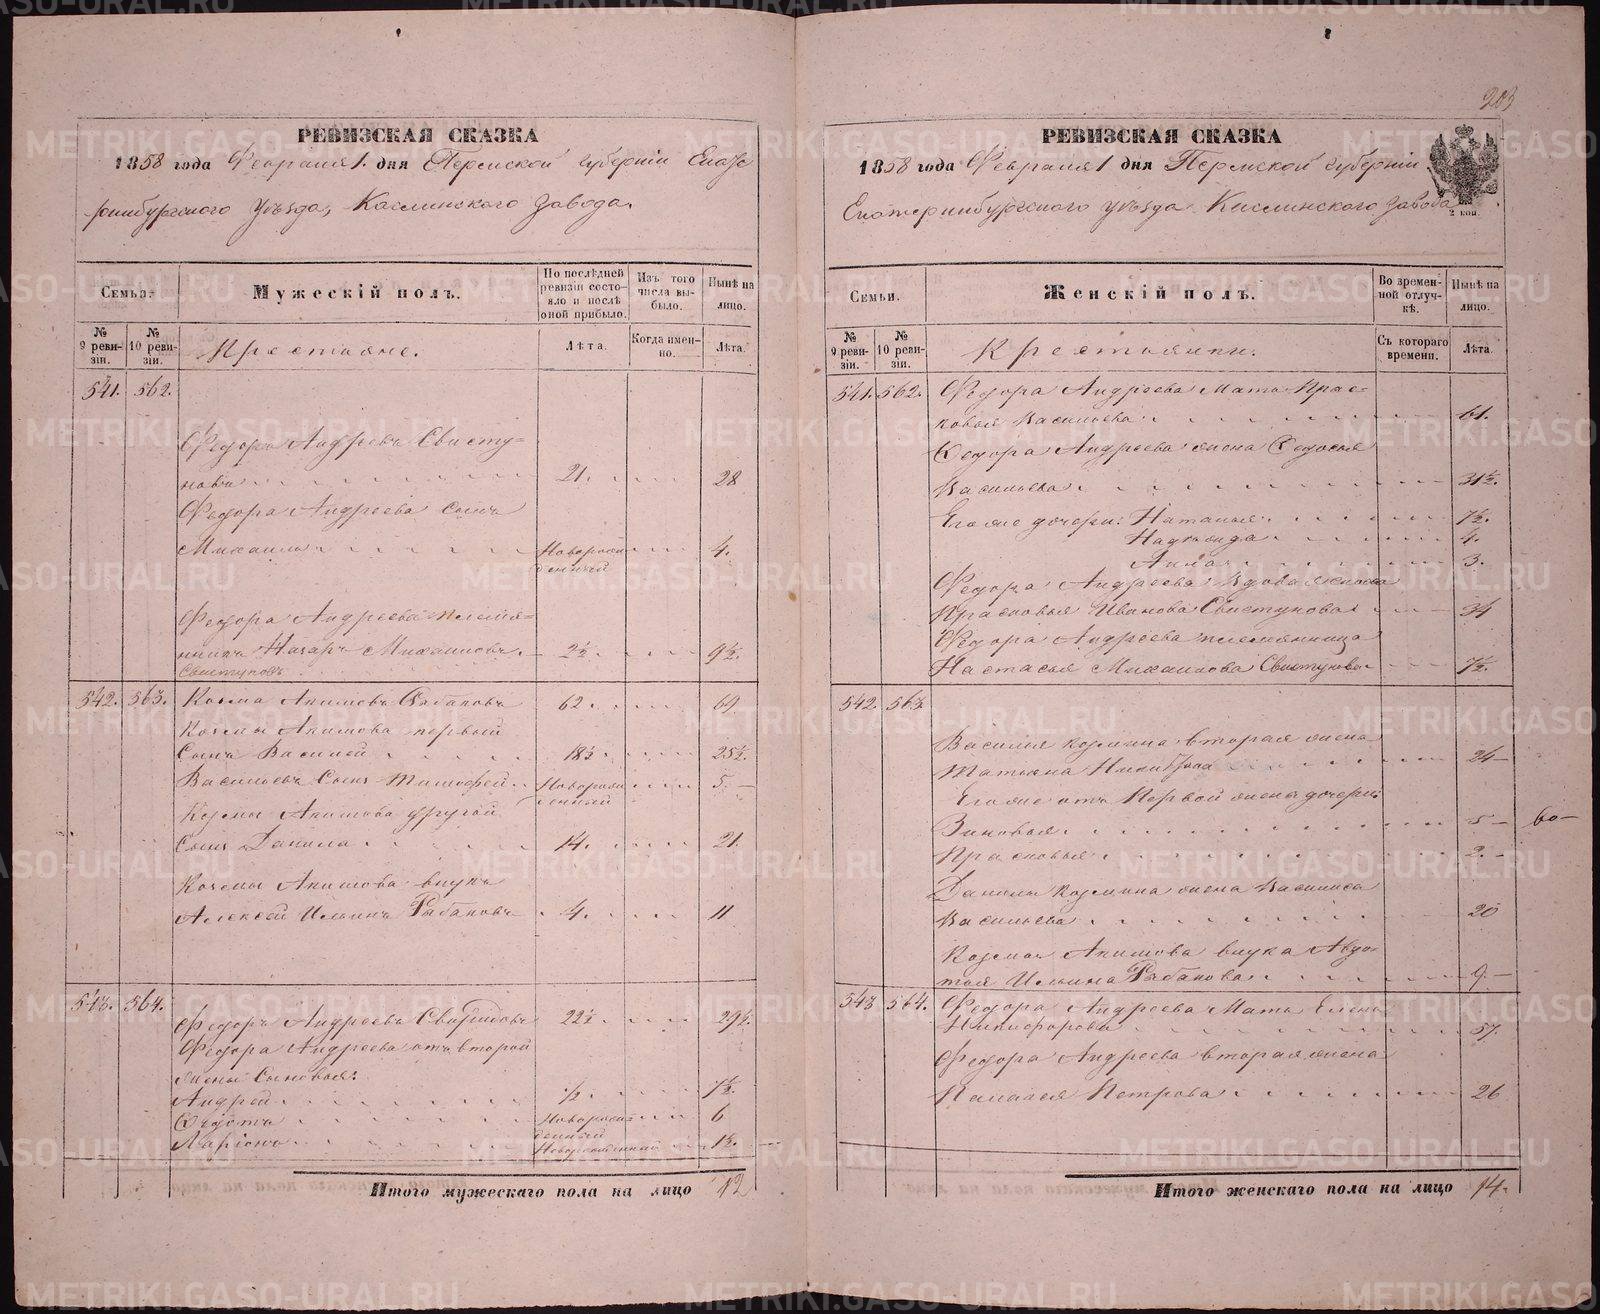 203
РЕВИЗСКАЯ СКАЗКА
1858 года Февраля 1. дня Пермской губерніи Екате
ринбургскаго уѣзда, Каслинскаго завода.
Семьи.
Мужескій полъ.
По послѣдней ревизіи состояло и послѣ оной прибыло.
Изъ того числа выбыло.
Нынѣ на лицо.
№ 9 ревизіи.
№ 10 ревизіи.
Крестьяне.
Лѣта.
Когда именно.
Лѣта.
541. 562.
Федоръ Андреевъ Свисту-
новъ 21. 28
Федора Андреева сынъ
Михаилъ Новорож 4.
денный
Федора Андреева племя-
нникъ Назаръ Михаиловъ 2½ 9½.
Свистуновъ
542. 563. Козма Акимовъ Рябановъ 62. 69
Козмы Акимова первый
Сынъ Василей 18½ 25½
Васильевъ Сынъ Тимофей Новорож 5.
денный
Козмы Акимова другой
Сынъ Данила 14. 21.
Козмы Акимова внукъ
Алексей Ильинъ Рябановъ 4. 11
543. 564.
Федоръ Андреевъ 22½ 29½
Федора Андреева отъ второй
жены Сыновья:
Андрей ½ 7½.
Федотъ Новорож 6
денный
Ларіонъ Новорожденный 1½.
Итого мужескаго пола на лицо 12
РЕВИЗСКАЯ СКАЗКА
1858 года Февраля 1 дня Пермской губерніи
Екатеринбургскаго уѣзда Каслинскаго завода
2 коп.
Семьи.
Женскій полъ.
Во временной отлучкѣ.
Нынѣ на лицо.
№ 9 ревизіи.
№ 10 ревизіи.
Крестьянки.
Съ котораго времени.
Лѣта.
541. 562. Федора Андреева Мать Прас-
ковья Васильева 61.
Федора Андреева жена Федосья
Васильева 31½.
Его же дочери: Наталья 7½.
Надежда 4.
Анна 3.
Федора Андреева Вдова
Прасковья Иванова Свистунова 34
Федора Андреева племянница
Настасья Михаилова Свистунова 7½.
542. 563.
Василья Козмина вторая жена
Татьяна 24
Его же отъ Первой жены дочери:
Зиновья 5 60
Прасковья 2.
Данилы Козмина жена Василиса
Васильева 20
Козмы Акимова внука Авдо-
тья Ильина Рябанова 9.
543 564. Федора Андреева Мать Елена
Никифорова 57.
Федора Андреева вторая жена
Палагея Петрова 26
Итого женскаго пола на лицо 14.
METRIKI.GASO-URAL.RU